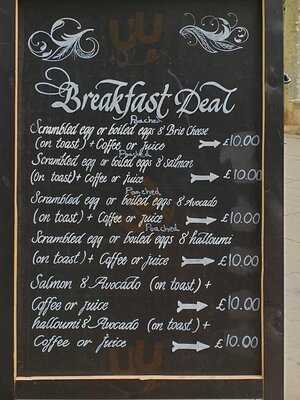 Breakfast Deal
Poached
Scrambled egg or boiled eggs & Brie Cheese
(on toast) + Coffee or juice → £10.00
Poached
Scrambled egg or boiled eggs & Salmon
(on toast) + Coffee or juice → £10.00
Poached
Scrambled egg or boiled eggs & Avocado
(on toast) + Coffee or juice → £10.00
Poached
Scrambled egg or boiled eggs & halloumi
(on toast) + Coffee or juice → £10.00
Salmon & Avocado (on toast) +
Coffee or juice → £10.00
halloumi & Avocado (on toast) +
Coffee or juice → £10.00